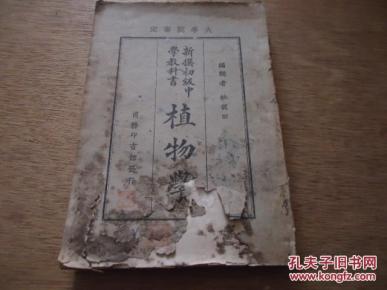 大學院審定
編輯者 杜就田
新撰初級中
學教科書
植物學
商務印書館發行
孔夫子旧书网